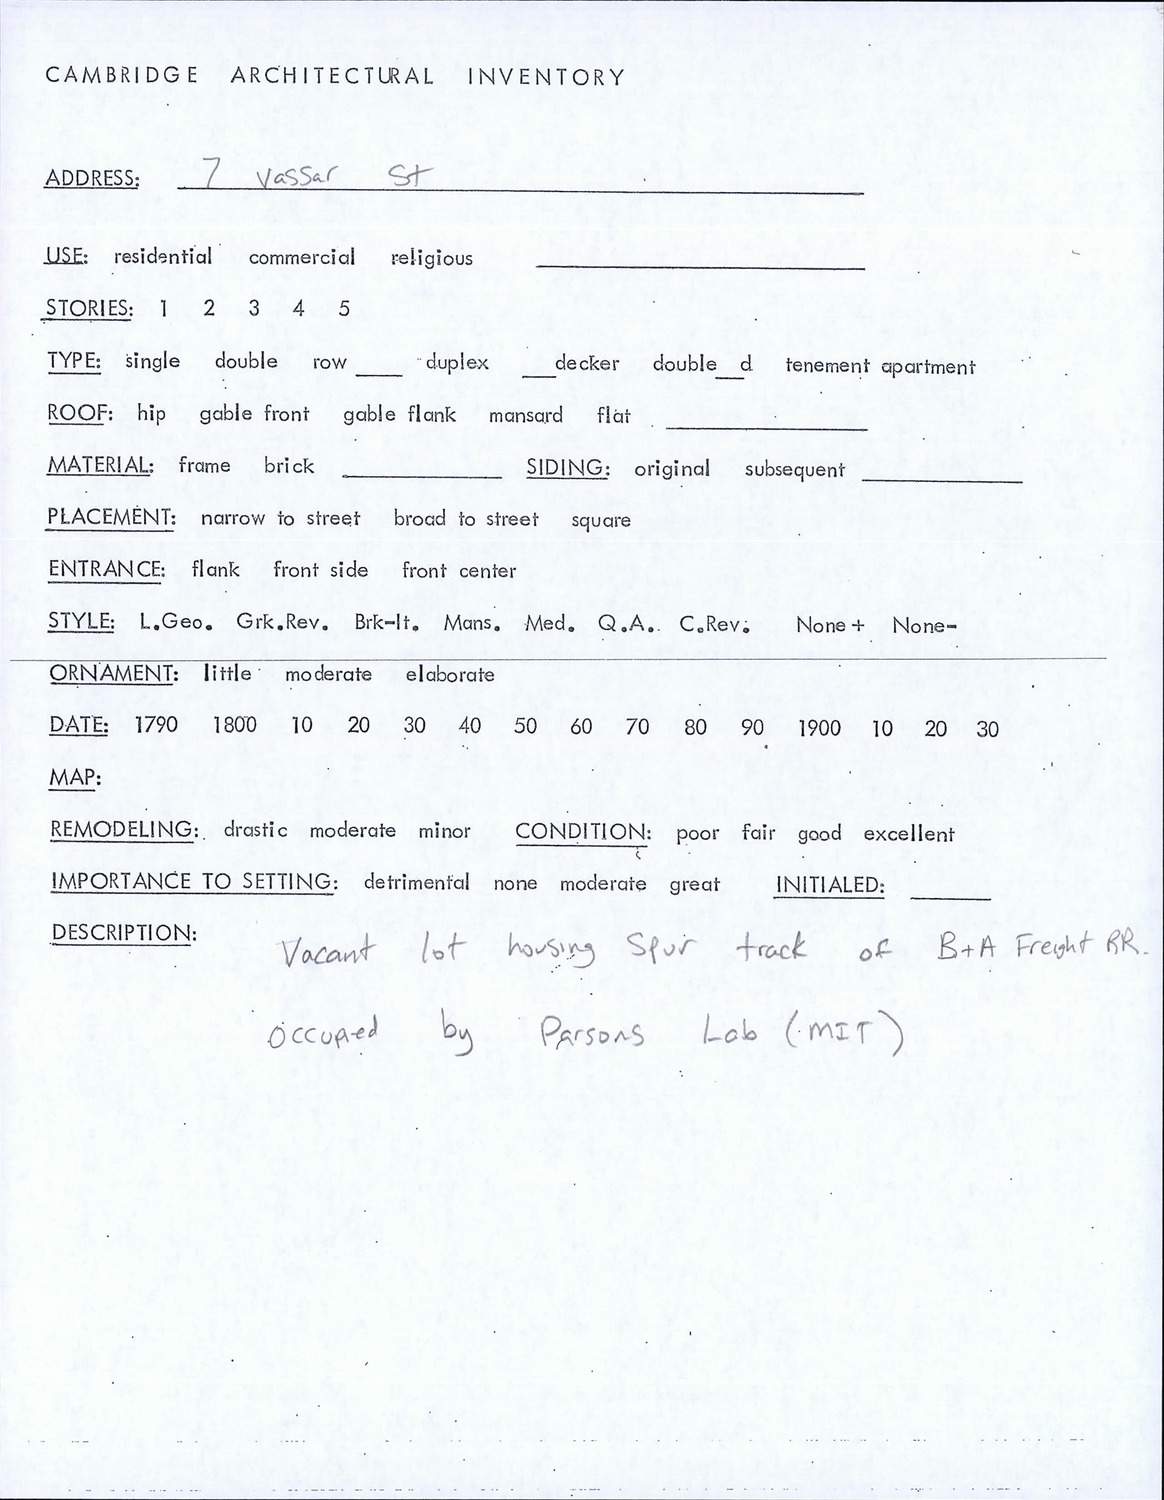 CAMBRIDGE ARCHITECTURAL INVENTORY
ADDRESS: 7 Vassar St
USE: residential commercial religious
STORIES: 1 2 3 4 5
TYPE: single double row ____ duplex ___decker double__d tenement apartment
ROOF: hip gable front gable flank mansard flat
MATERIAL: frame brick ____ SIDING: original subsequent ____
PLACEMENT: narrow to street broad to street square
ENTRANCE: flank front side front center
STYLE: L.Geo. Grk.Rev. Brk-It. Mans. Med. Q.A. C.Rev. None+ None-
ORNAMENT: little moderate elaborate
DATE: 1790 1800 10 20 30 40 50 60 70 80 90 1900 10 20 30
MAP:
REMODELING: drastic moderate minor CONDITION: poor fair good excellent
IMPORTANCE TO SETTING: detrimental none moderate great INITIALED: ____
DESCRIPTION: Vacant lot housing Spur track of B+A Freight RR.
Occupied by Parsons Lab (MIT)